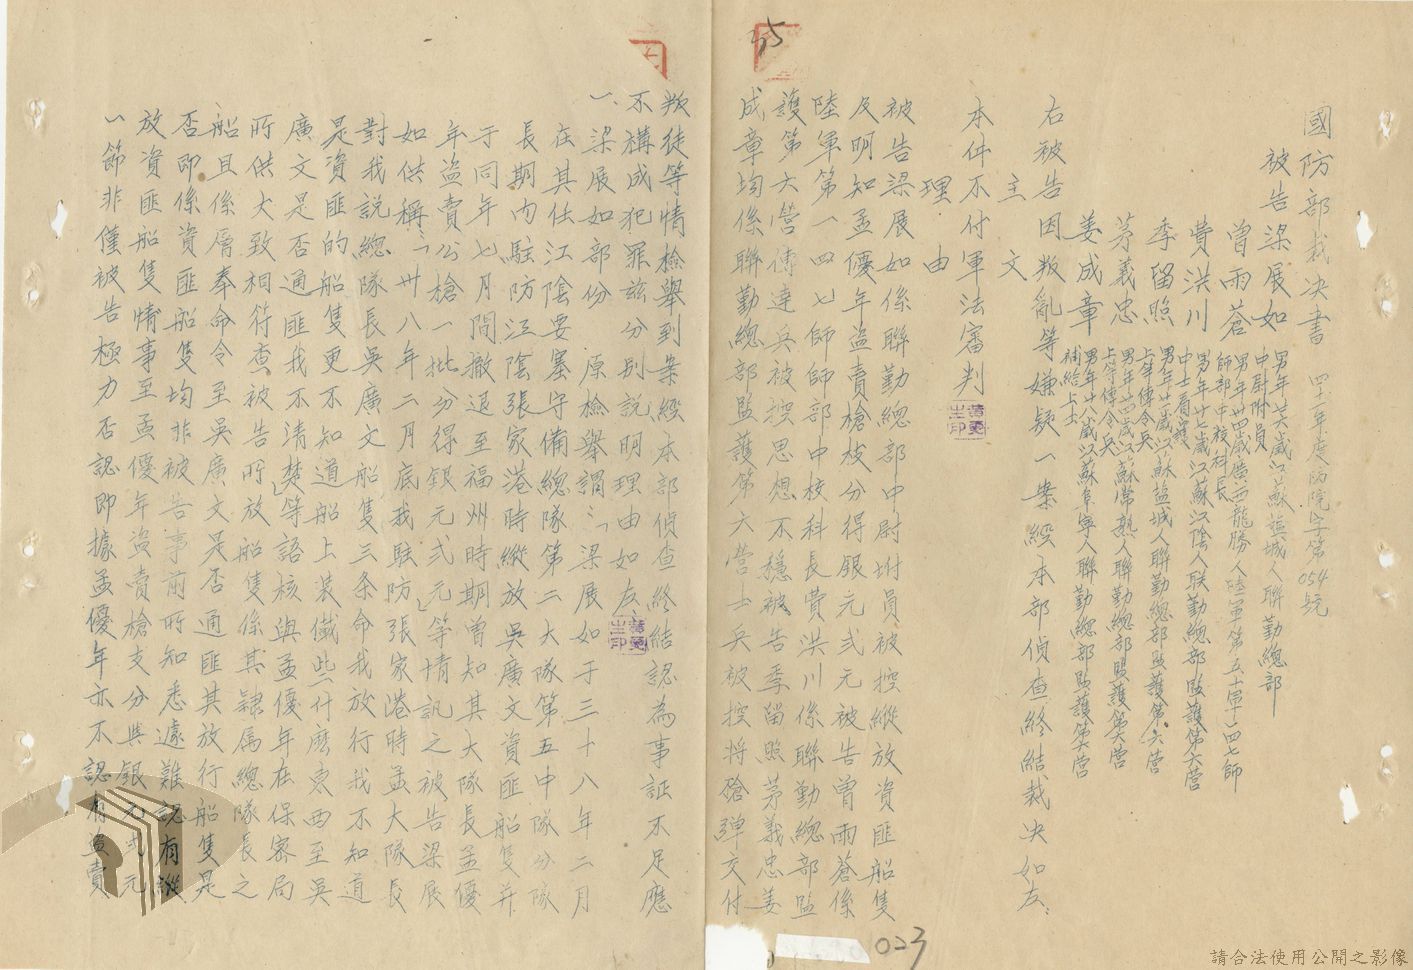 國防部裁決書 四十一年度防院字第054號
被告梁展如 男年廿六歲江蘇鹽城人聯勤總部
中尉附員
曾雨蒼 男年卅四歲廣西龍勝人陸軍第五十軍一四七師
師部中校科長
費洪川 男年廿七歲江蘇江陰人联勤總部監護第六營
中士看護
季留照 男年廿歲江蘇鹽城人聯勤總部監護第六營
上等傳令兵
茅義忠 男年廿四歲江蘇常熟人聯勤總部監護第六營
上等傳令兵
姜成章 男年廿八歲江蘇阜寧人聯勤總部監護第六營
補給上士
右被告因叛亂等嫌疑一案經本部偵查終結裁決如左:
主文
本件不付軍法審判
理由
被告梁展如係聯勤總部中尉附員被控縱放資匪船隻
及明知孟優年盜賣槍枝分得銀元弍元被告曾雨蒼係
陸軍第一四七師師部中校科長費洪川係聯勤總部監
護第六營傳達兵被控思想不穩被告季留照茅義忠姜
成章均係聯勤總部監護第六營士兵被控將槍彈交付
叛徒等情檢舉到案經本部偵查終結認為事証不足應
不構成犯罪茲分別說明理由如左
一、梁展如部份 原檢舉謂:「梁展如于三十八年二月
在其任江陰要塞守備總隊第二大隊第五中隊分隊
長期內駐防江陰張家港時縱放吳廣文資匪船隻并
于同年七月間撤退至福州時期曾知其大隊長孟優
年盜賣公槍一批分得銀元弍元」等情訊之被告梁展
如供稱:「卅八年二月底我駐防張家港時孟大隊長
對我說總隊長吳廣文船隻三条命我放行我不知道
是資匪的船隻更不知道船上裝儎些什麽東西至吳
廣文是否通匪我不清楚」等語核與孟優年在保密局
所供大致相符查被告所放船隻係其隸属總隊長之
船且係層奉命令至吳廣文是否通匪其放行船隻是
否即係資匪船隻均非被告事前所知悉遽難認有縱
放資匪船隻情事至孟優年盜賣槍支分與銀元弍元
一節非僅被告極力否認即據孟優年亦不認有盜賣
023
請合法使用公開之影像